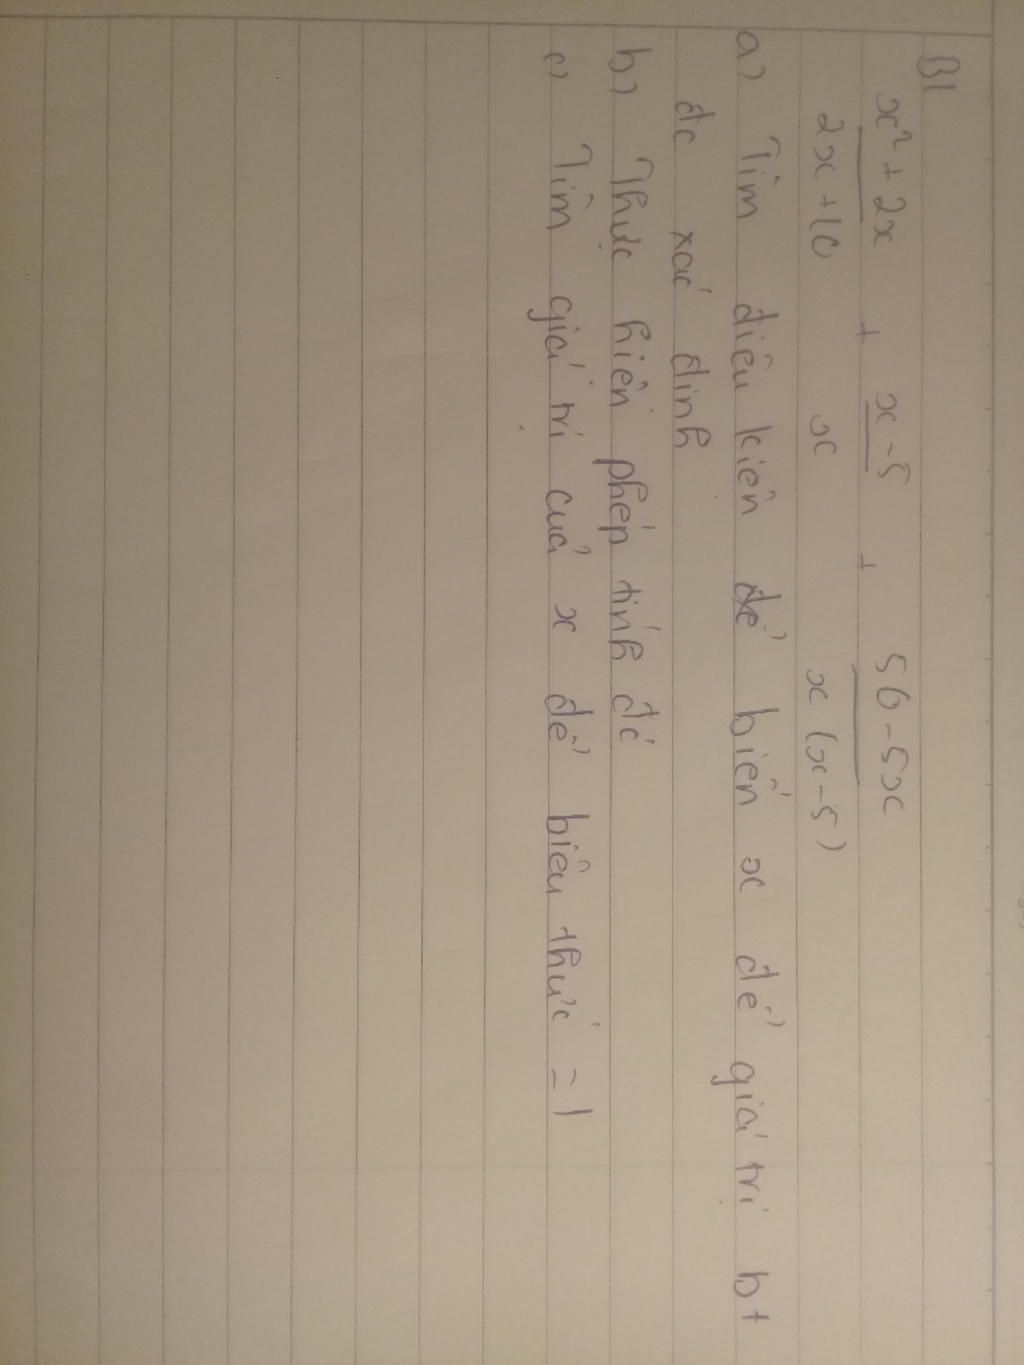 B1
x² + 2x / 2x + 10 + x - 5 / x + 50 - 5x / x (x - 5)
a) Tìm điều kiện để biến x để giá trị bt
đc xác định
b) Thực hiện phép tính đó
c) Tìm giá trị của x để biểu thức = 1